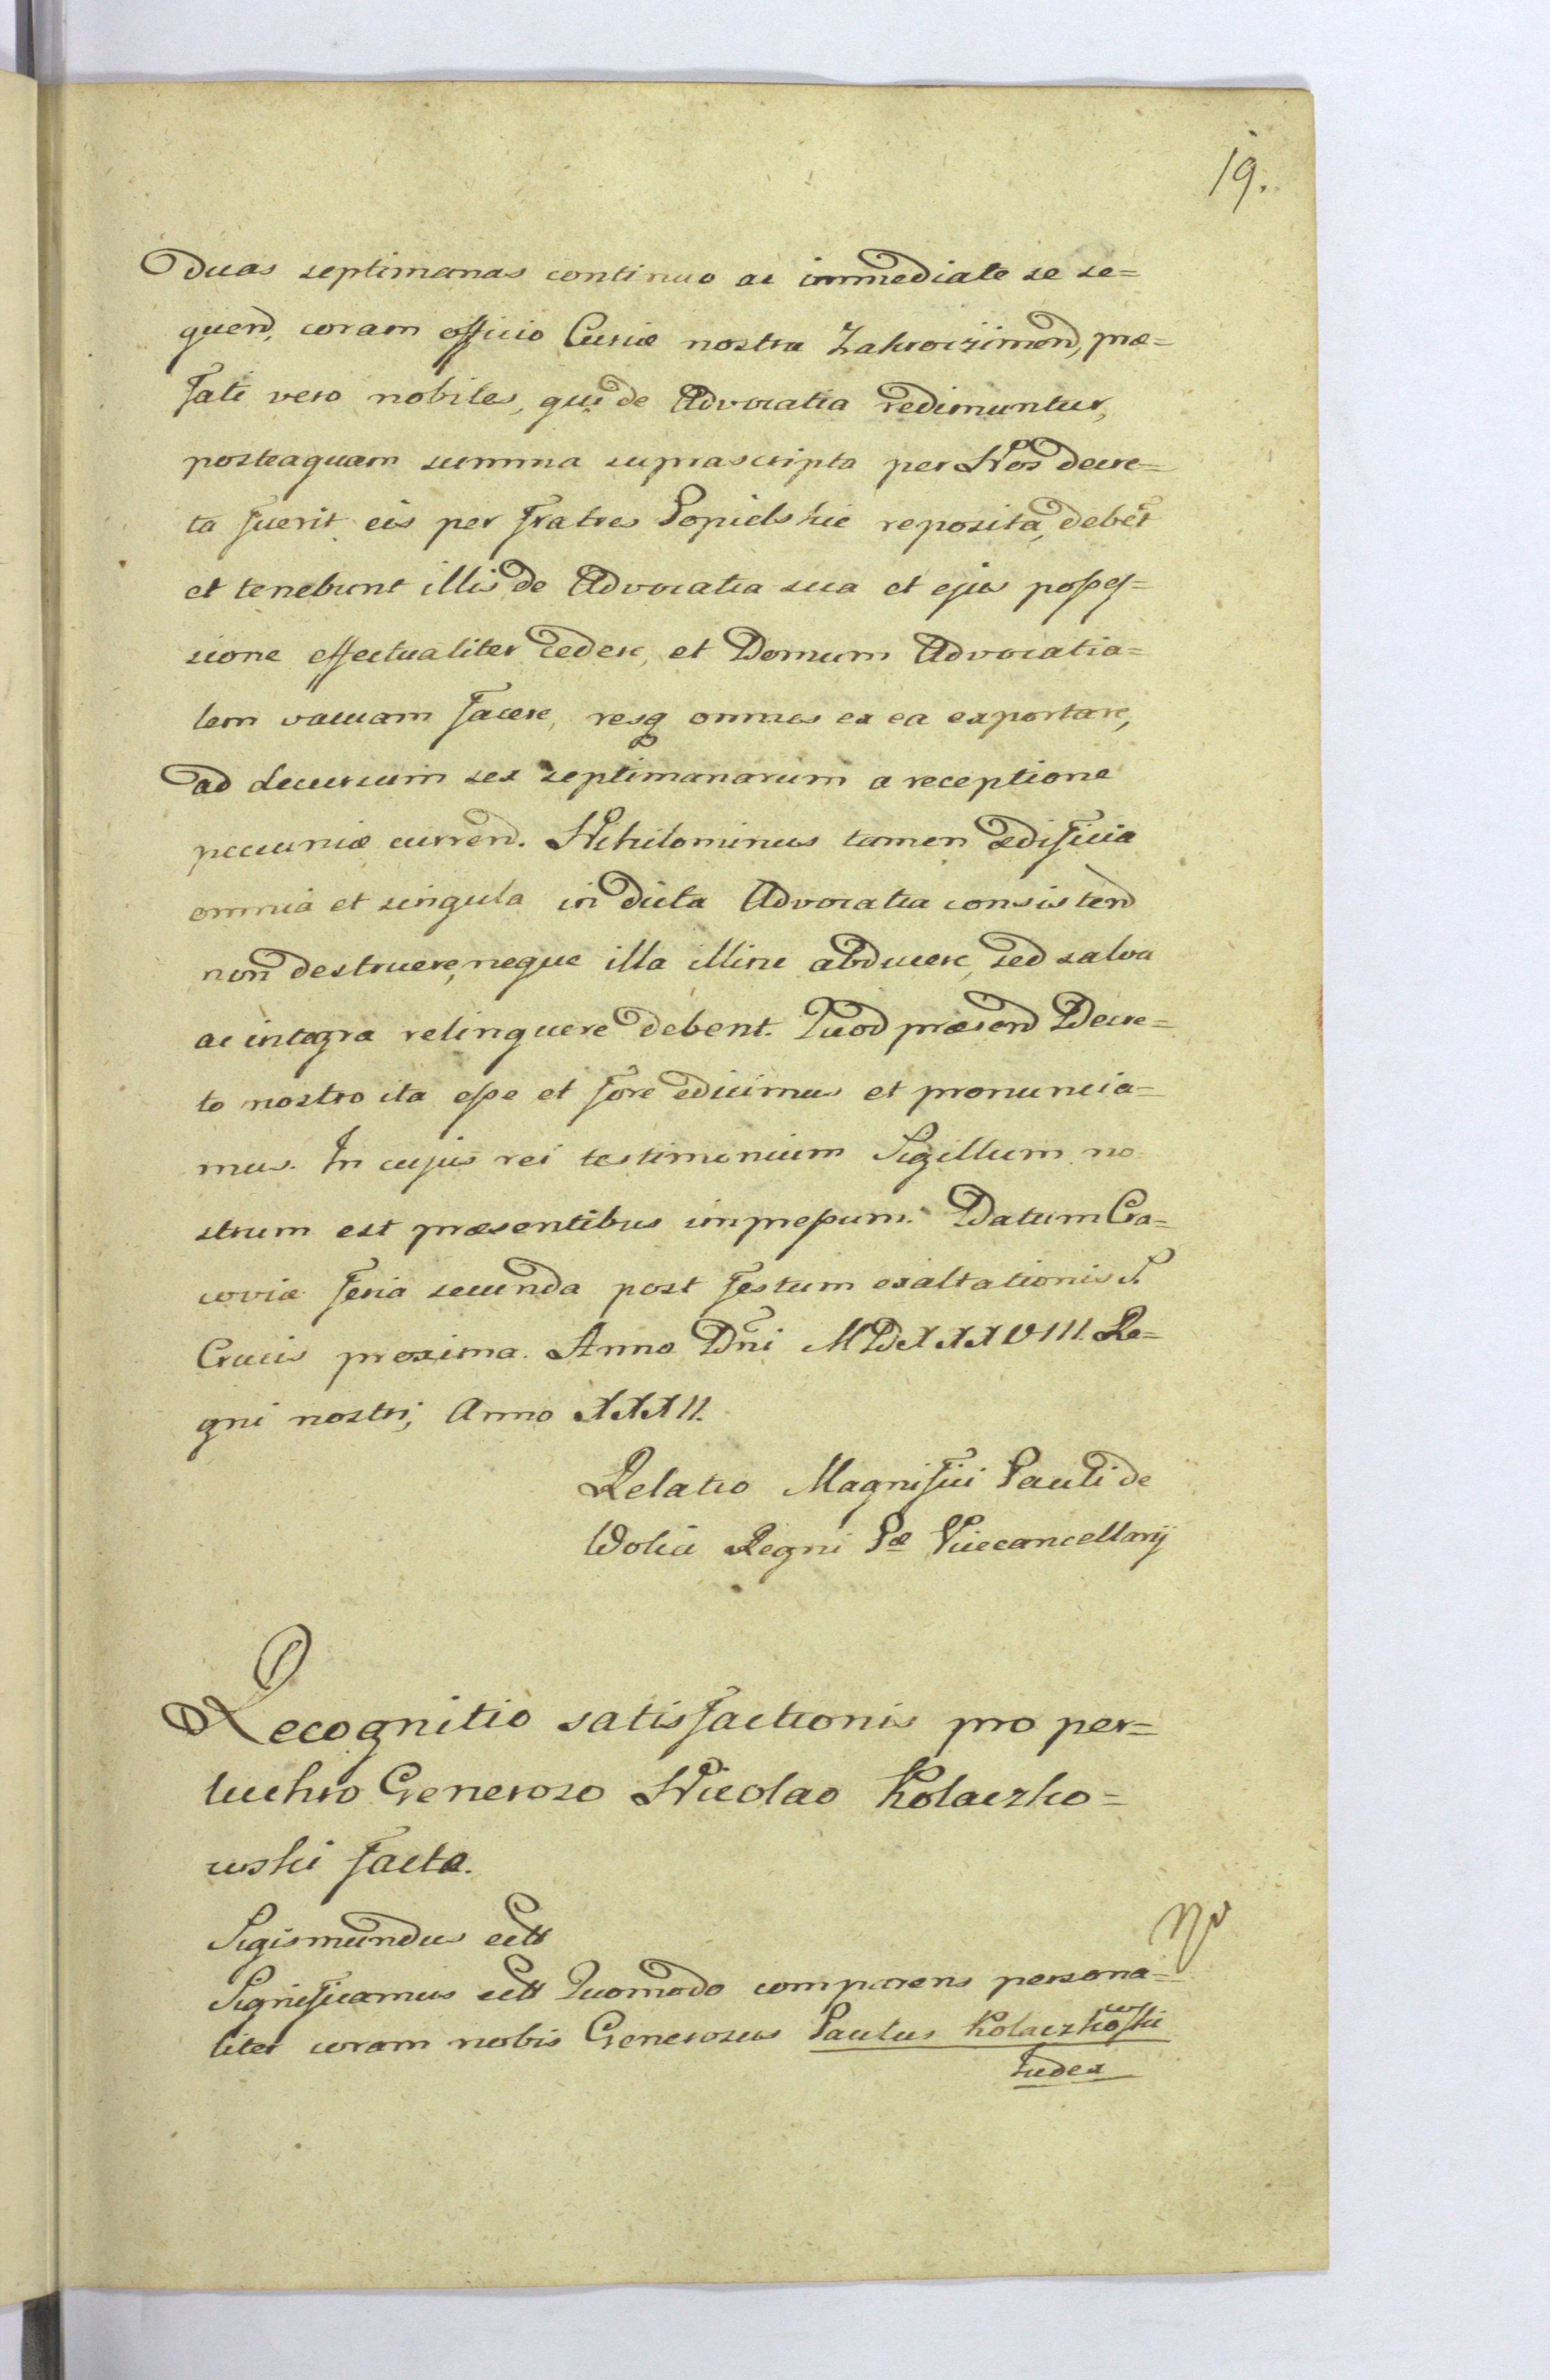 19.
duas septimanas continuo ac immediate se se=
quend, coram officio Curiæ nostra Zakroczimen, præ=
fati vero nobiles, qui de Advocatia redimuntur,
posteaquam summa suprascripta per Nos decre=
ta fuerit eis per fratres Popielskie reposita, debet
et tenebunt illis de Advocatia sua et ejus posses=
sione effectualiter cedere, et Domum Advocatia=
lem vacuam facere, resq omnes ex ea exportare,
ad decursum sex septimanarum a receptione
pecuniæ currend. Nihilominus tamen ædificia
omnia et singula in dicta Advocatia consistend
non destruere, neque illa illinc abducere, sed salva
ac integra relinquere debent. Quod præsend Decre=
to nostro ita esse et fore edicimus et pronuncia=
mus. In cujus rei testimonium Sigillum no
strum est præsentibus impressum. Datum Cra=
coviæ feria secunda post festum exaltationis S.
Crucis proxima. Anno Dni MDXXXVIII Re=
gni nostri, Anno XXXII.
Relatio Magnifici Pauli de
Wolia Regni Pæ Vicecancellarij
Recognitio satisfactionis pro per=
luchro Generoso Nicolao Kolaczko=
wski facta.
Sigismundus ectt
Significamus ectt Quomodo comparens persona=
liter coram nobis Generosus Paulus Kolaczkowski
Iudex